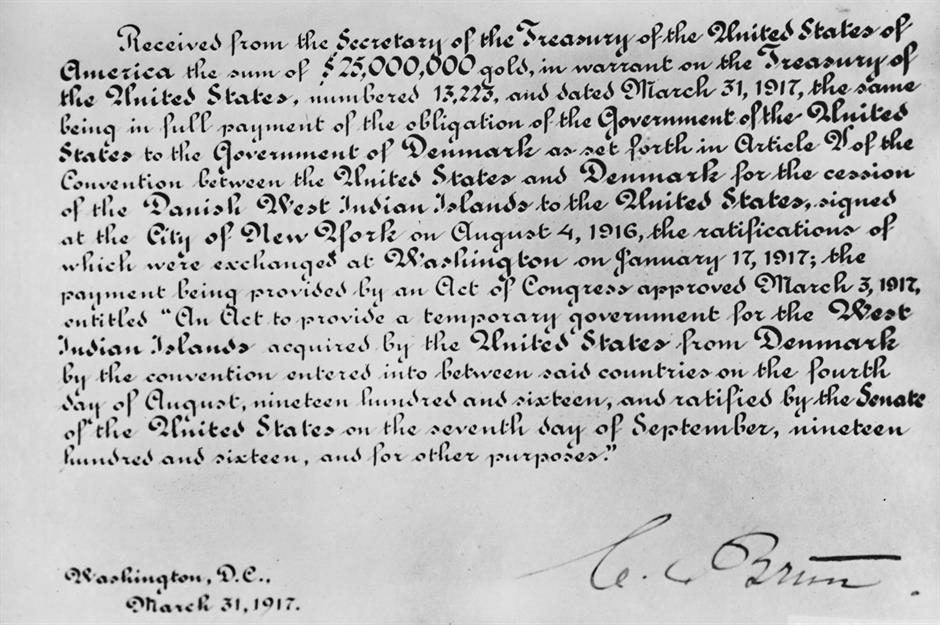 Received from the Secretary of the Treasury of the United States of
America the sum of $25,000,000 gold, in warrant on the Treasury of
the United States, numbered 13,223, and dated March 31, 1917, the same
being in full payment of the obligation of the Government of the United
States to the Government of Denmark as set forth in Article V of the
Convention between the United States and Denmark for the cession
of the Danish West Indian Islands to the United States, signed
at the City of New York on August 4, 1916, the ratifications of
which were exchanged at Washington on January 17, 1917; the
payment being provided by an Act of Congress approved March 3, 1917,
entitled "An Act to provide a temporary government for the West
Indian Islands acquired by the United States from Denmark
by the convention entered into between said countries on the fourth
day of August, nineteen hundred and sixteen, and ratified by the Senate
of the United States on the seventh day of September, nineteen
hundred and sixteen, and for other purposes."
C. Brun
Washington, D.C.,
March 31, 1917.